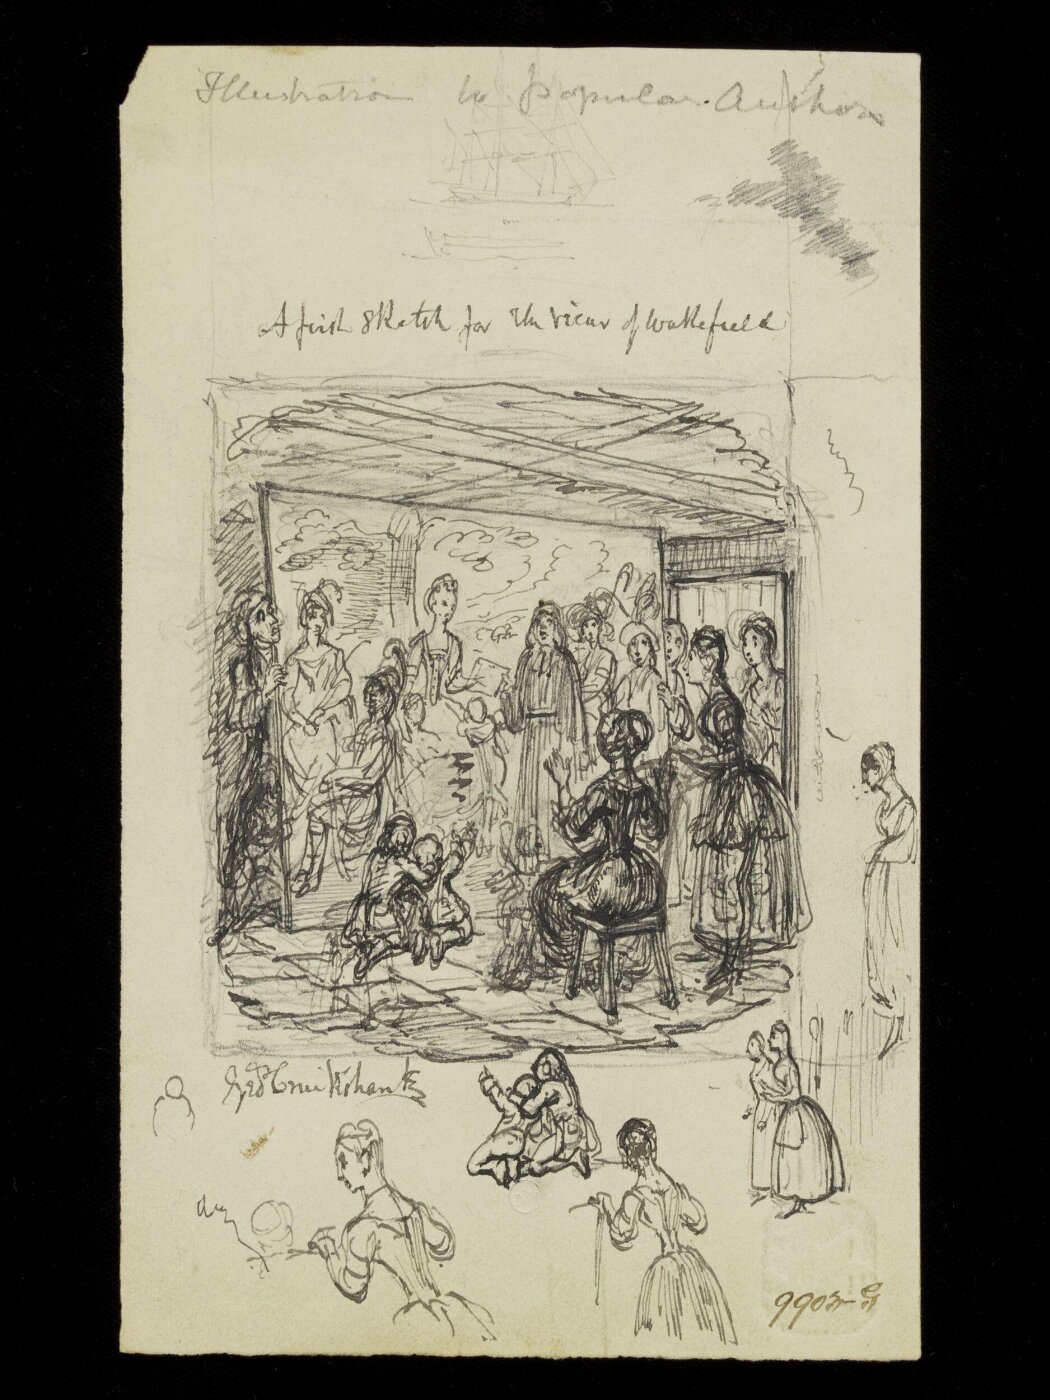 Illustration to popular Authors
A first sketch for the Vicar of Wakefield
Geo Cruikshank
9903-G